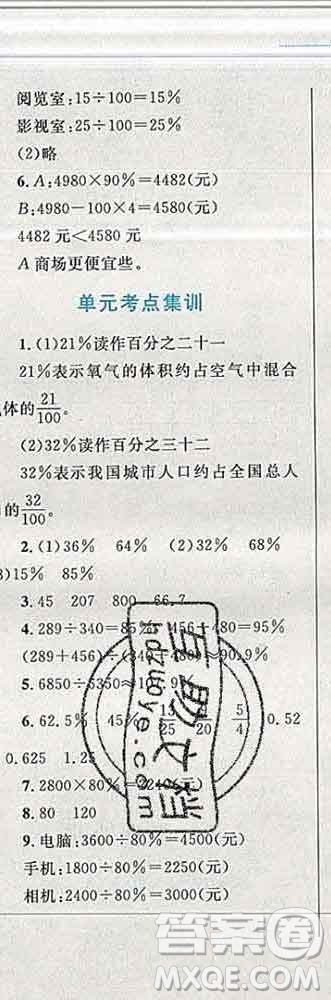 阅览室:15÷100=15%
影视室:25÷100=25%
(2)略
6. A:4980×90%=4482(元)
B:4980-100×4=4580(元)
4482元<4580元
A商场更便宜些。
单元考点集训
1. (1)21%读作百分之二十一
21%表示氧气的体积约占空气中混合
体的21/100。
(2)32%读作百分之三十二
32%表示我国城市人口约占全国总人
的32/100。
2. (1)36% 64% (2)32% 68%
3)15% 85%
3. 45 207 800 66.7
4. 289÷340=85% 456÷480=95%
(289+456)÷(340+480)≈90.9%
5. 6850÷ 350≈ %
6. 62.5% 45% /25 /20 5/4 0.52
0.625 1.25
7. 2800×80%=2240(元)
8. 80 120
9. 电脑:3600÷80%=4500(元)
手机:1800÷80%=2250(元)
相机:2400÷80%=3000(元)
互助文档
hdzuoye.com
答案圈
MXQE.COM